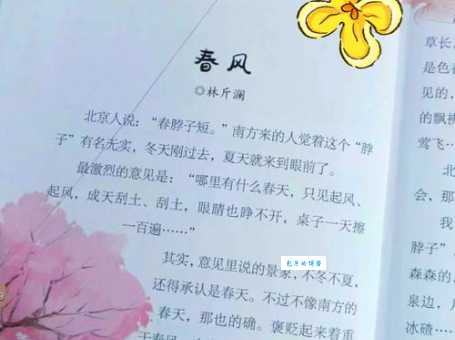 春风
◎林斤澜
北京人说：“春脖子短。”南方来的人觉着这个“脖
子”有名无实，冬天刚过去，夏天就来到眼前了。
最激烈的意见是：“哪里有什么春天，只见起风、
起风，成天刮土、刮土，眼睛也睁不开，桌子一天擦
一百遍……”
其实，意见里说的景象，不冬不夏，
还得承认是春天。不过不像南方的
春天，那也的确。褒贬起来着重
于春风
草长
是色
见的，
的飘
莺飞
会，那
我
脖子”
森森的
泉边，
冰碴